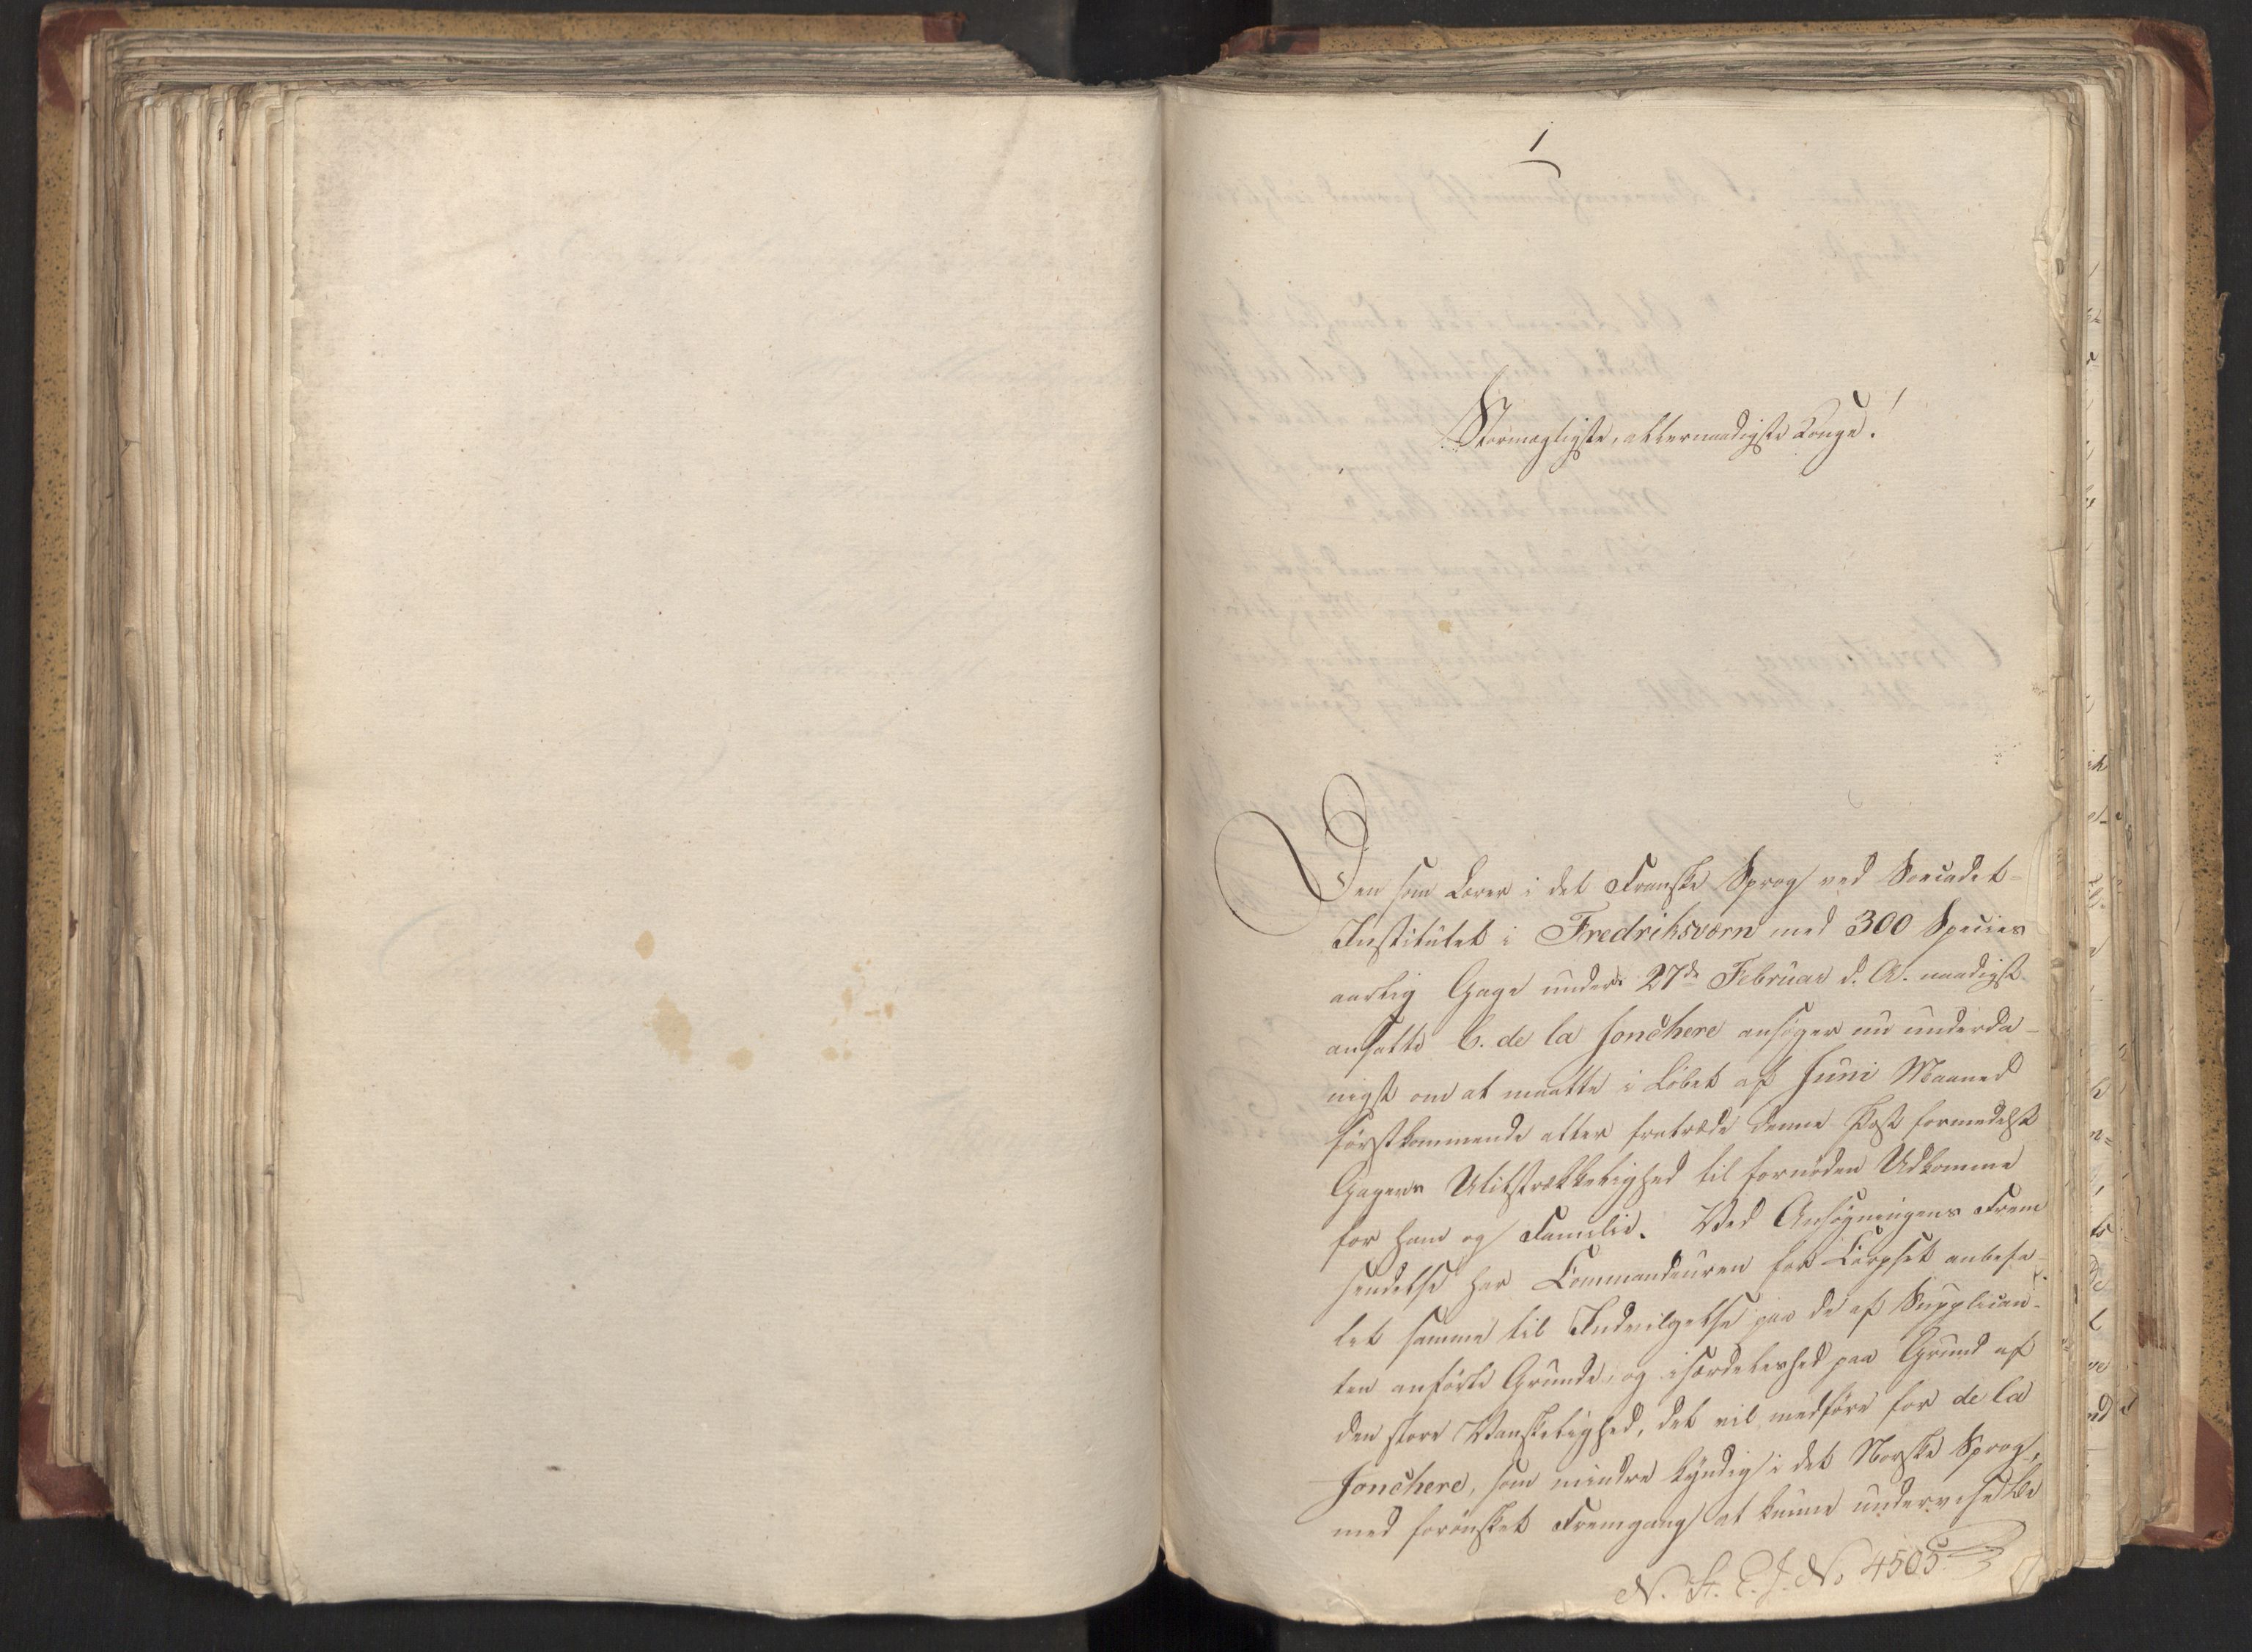 1
Stormægtigste, allernaadigste Konge!
Den som Lærer i det Franske Sprog ved Søecadet-
Institutet i Fredriksværn med 300 Species
aarlig Gage under 27de Februar d. A. naadigst
ansatte C. de la Jonchere ansøger nu underda-
nigst om at maatte i Løbet af Juni Maaned
førstkommende atter fratræde denne Post formedelst
Gagens Utilstrækkelighed til fornøden Udkomme
for ham og Familie. Ved Ansøgningens Frem
sendelse har Commandeuren for Corpset anbefa-
let samme til Indvilgelse paa de af Supplican-
ten anførte Grunde, og isærdeleshed paa Grund af
den store Vanskelighed, det vil medføre for de la
Jonchere, som mindre kyndig i det Norske Sprog,
med forønsket Fremgang at kunne undervise
N. St. E. J. No 4505